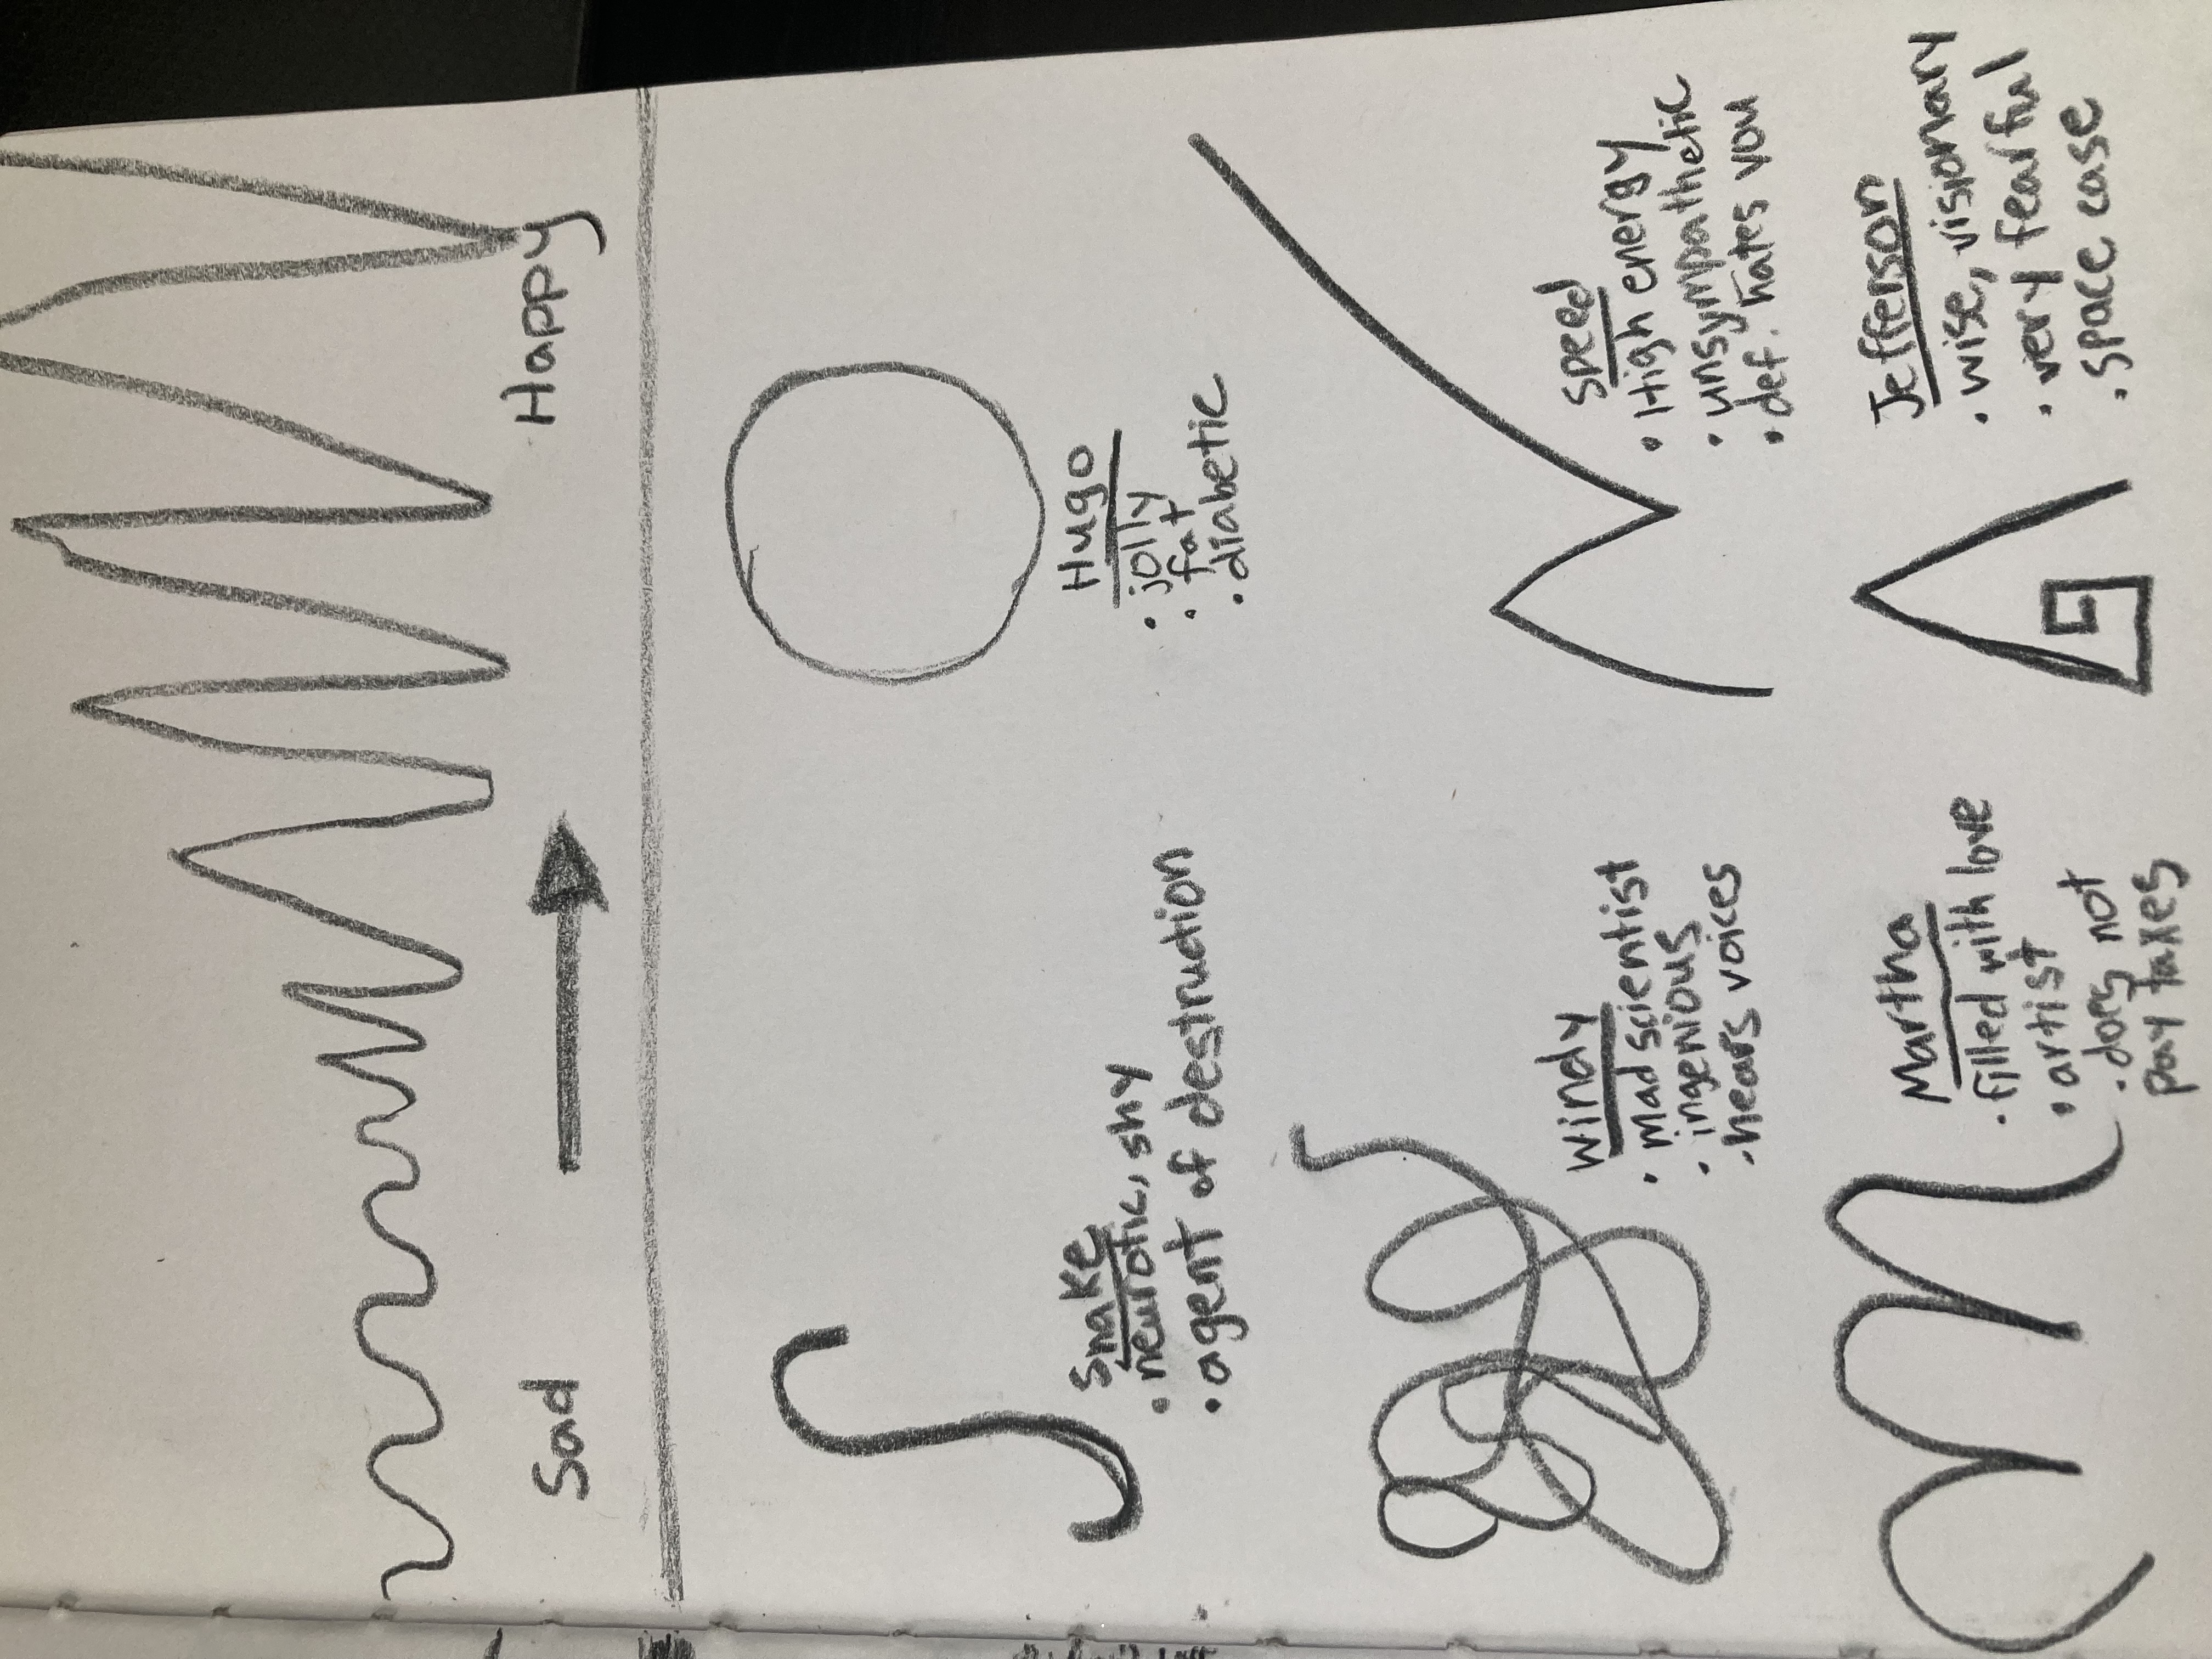 Sad
Happy
Snake
• neurotic, shy
• agent of destruction
Hugo
• jolly
• fat
• diabetic
Windy
• mad scientist
• ingenious
• hears voices
Speed
• High energy
• unsympathetic
• def. hates you
Martha
• filled with love
• artist
• does not
pay taxes
Jefferson
• wise, visionary
• very fearful
• space case